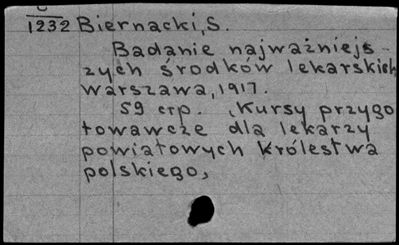 1232 Biernacki, S.
Badanie najważniejs-
zych środków lekarskich
Warszawa, 1917.
59 стр. , Kursy przygo
towawcze dla lekarzy
powiatowych Królestwa
polskiego,